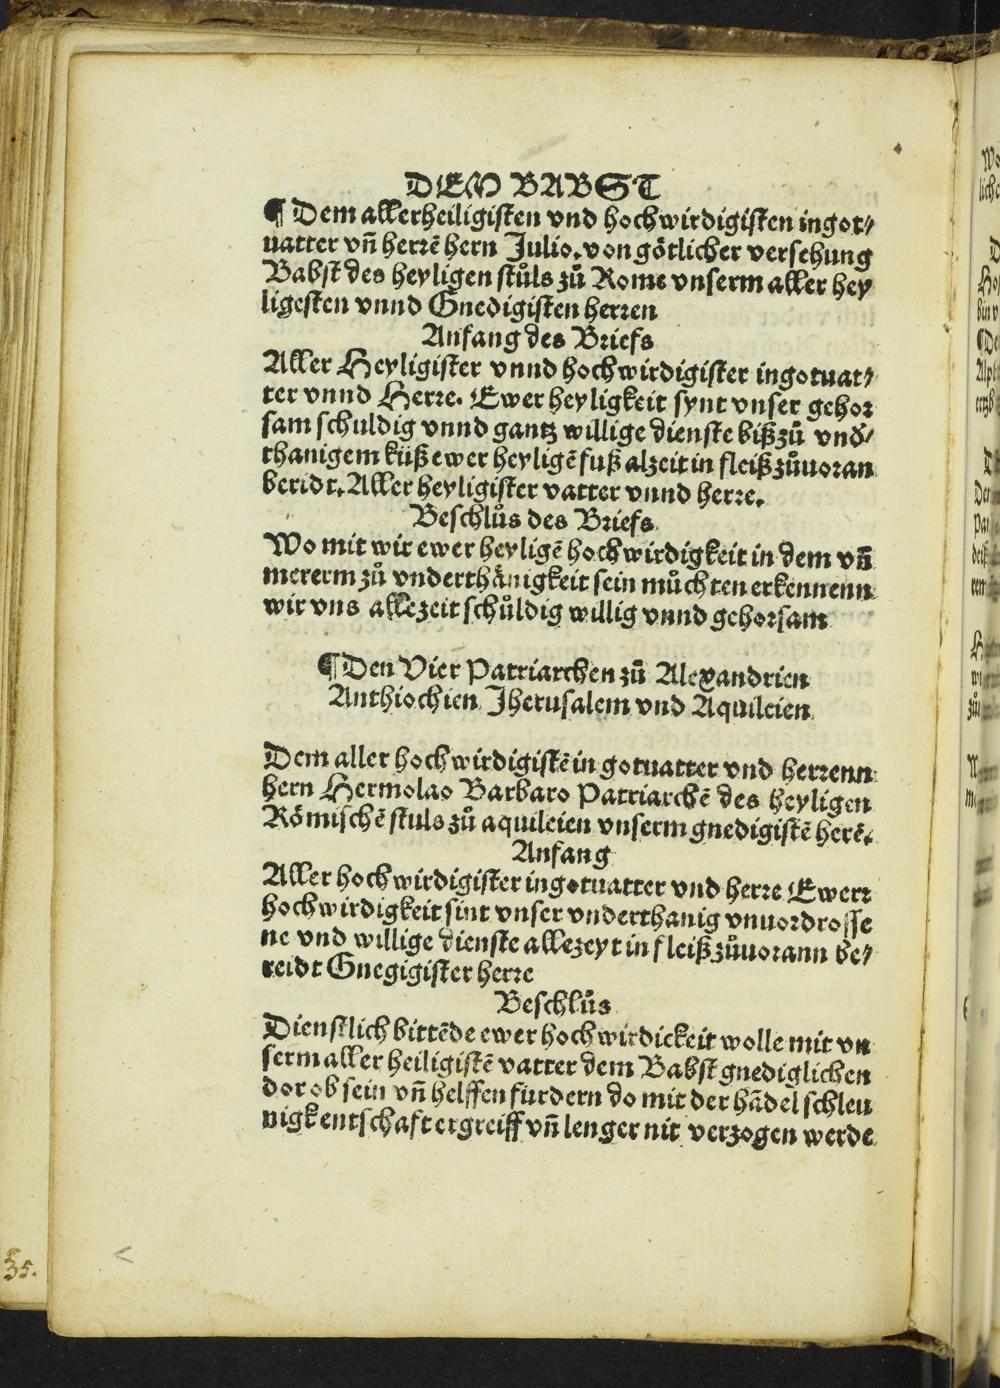 DEM BABST
¶ Dem allerheiligisten vnd hochwirdigisten in got⸗
uatter vñ herrē hern Julio. von gȯtlicher versehung
Babst des heyligen stůls zů Rome vnserm aller hey
ligesten vnnd Gnedigisten herren
Anfang des Briefs
Aller Heyligister vnnd hochwirdigister in gotuat⸗
ter vnnd Herre. Ewer heyligkeit synt vnser gehor
sam schuldig vnnd gantz willige dienste biß zů vnd͛⸗
thanigem küß ewer heyligē fuß alzeit in fleiß zůuoran
beridt. Aller heyligister vatter vnnd herre.
Beschlůs des Briefs
Wo mit wir ewer heyligē hochwirdigkeit in dem vñ
mererm zů vnderthänigkeit sein můchten erkennenn
wir vns allezeit schůldig willig vnnd gehorsam
¶ Den Vier Patriarchen zů Alexandrien
Anthiochien Jherusalem vnd Aquileien
Dem aller hochwirdigistē in gotuatter vnd herrenn
hern Hermolao Barbaro Patriarchē des heyligen
Römischē stuls zů aquileien vnserm gnedigistē herē.
Anfang
Aller hochwirdigister in gotuatter vnd herre Ewerr
hochwirdigkeit sint vnser vnderthanig vnuordrosse
ne vnd willige dienste allezeyt in fleiß zůuorann be⸗
reidt Gnegigister herre
Beschlůs
Dienstlich bittēde ewer hochwirdickeit wolle mit vn
serm aller heiligistē vatter dem Babst gnediglichen
dorob sein vñ helffen fürdern do mit der hādel schleu
nigk entschaft ergreiff vñ lenger nit verzogen werde
35.